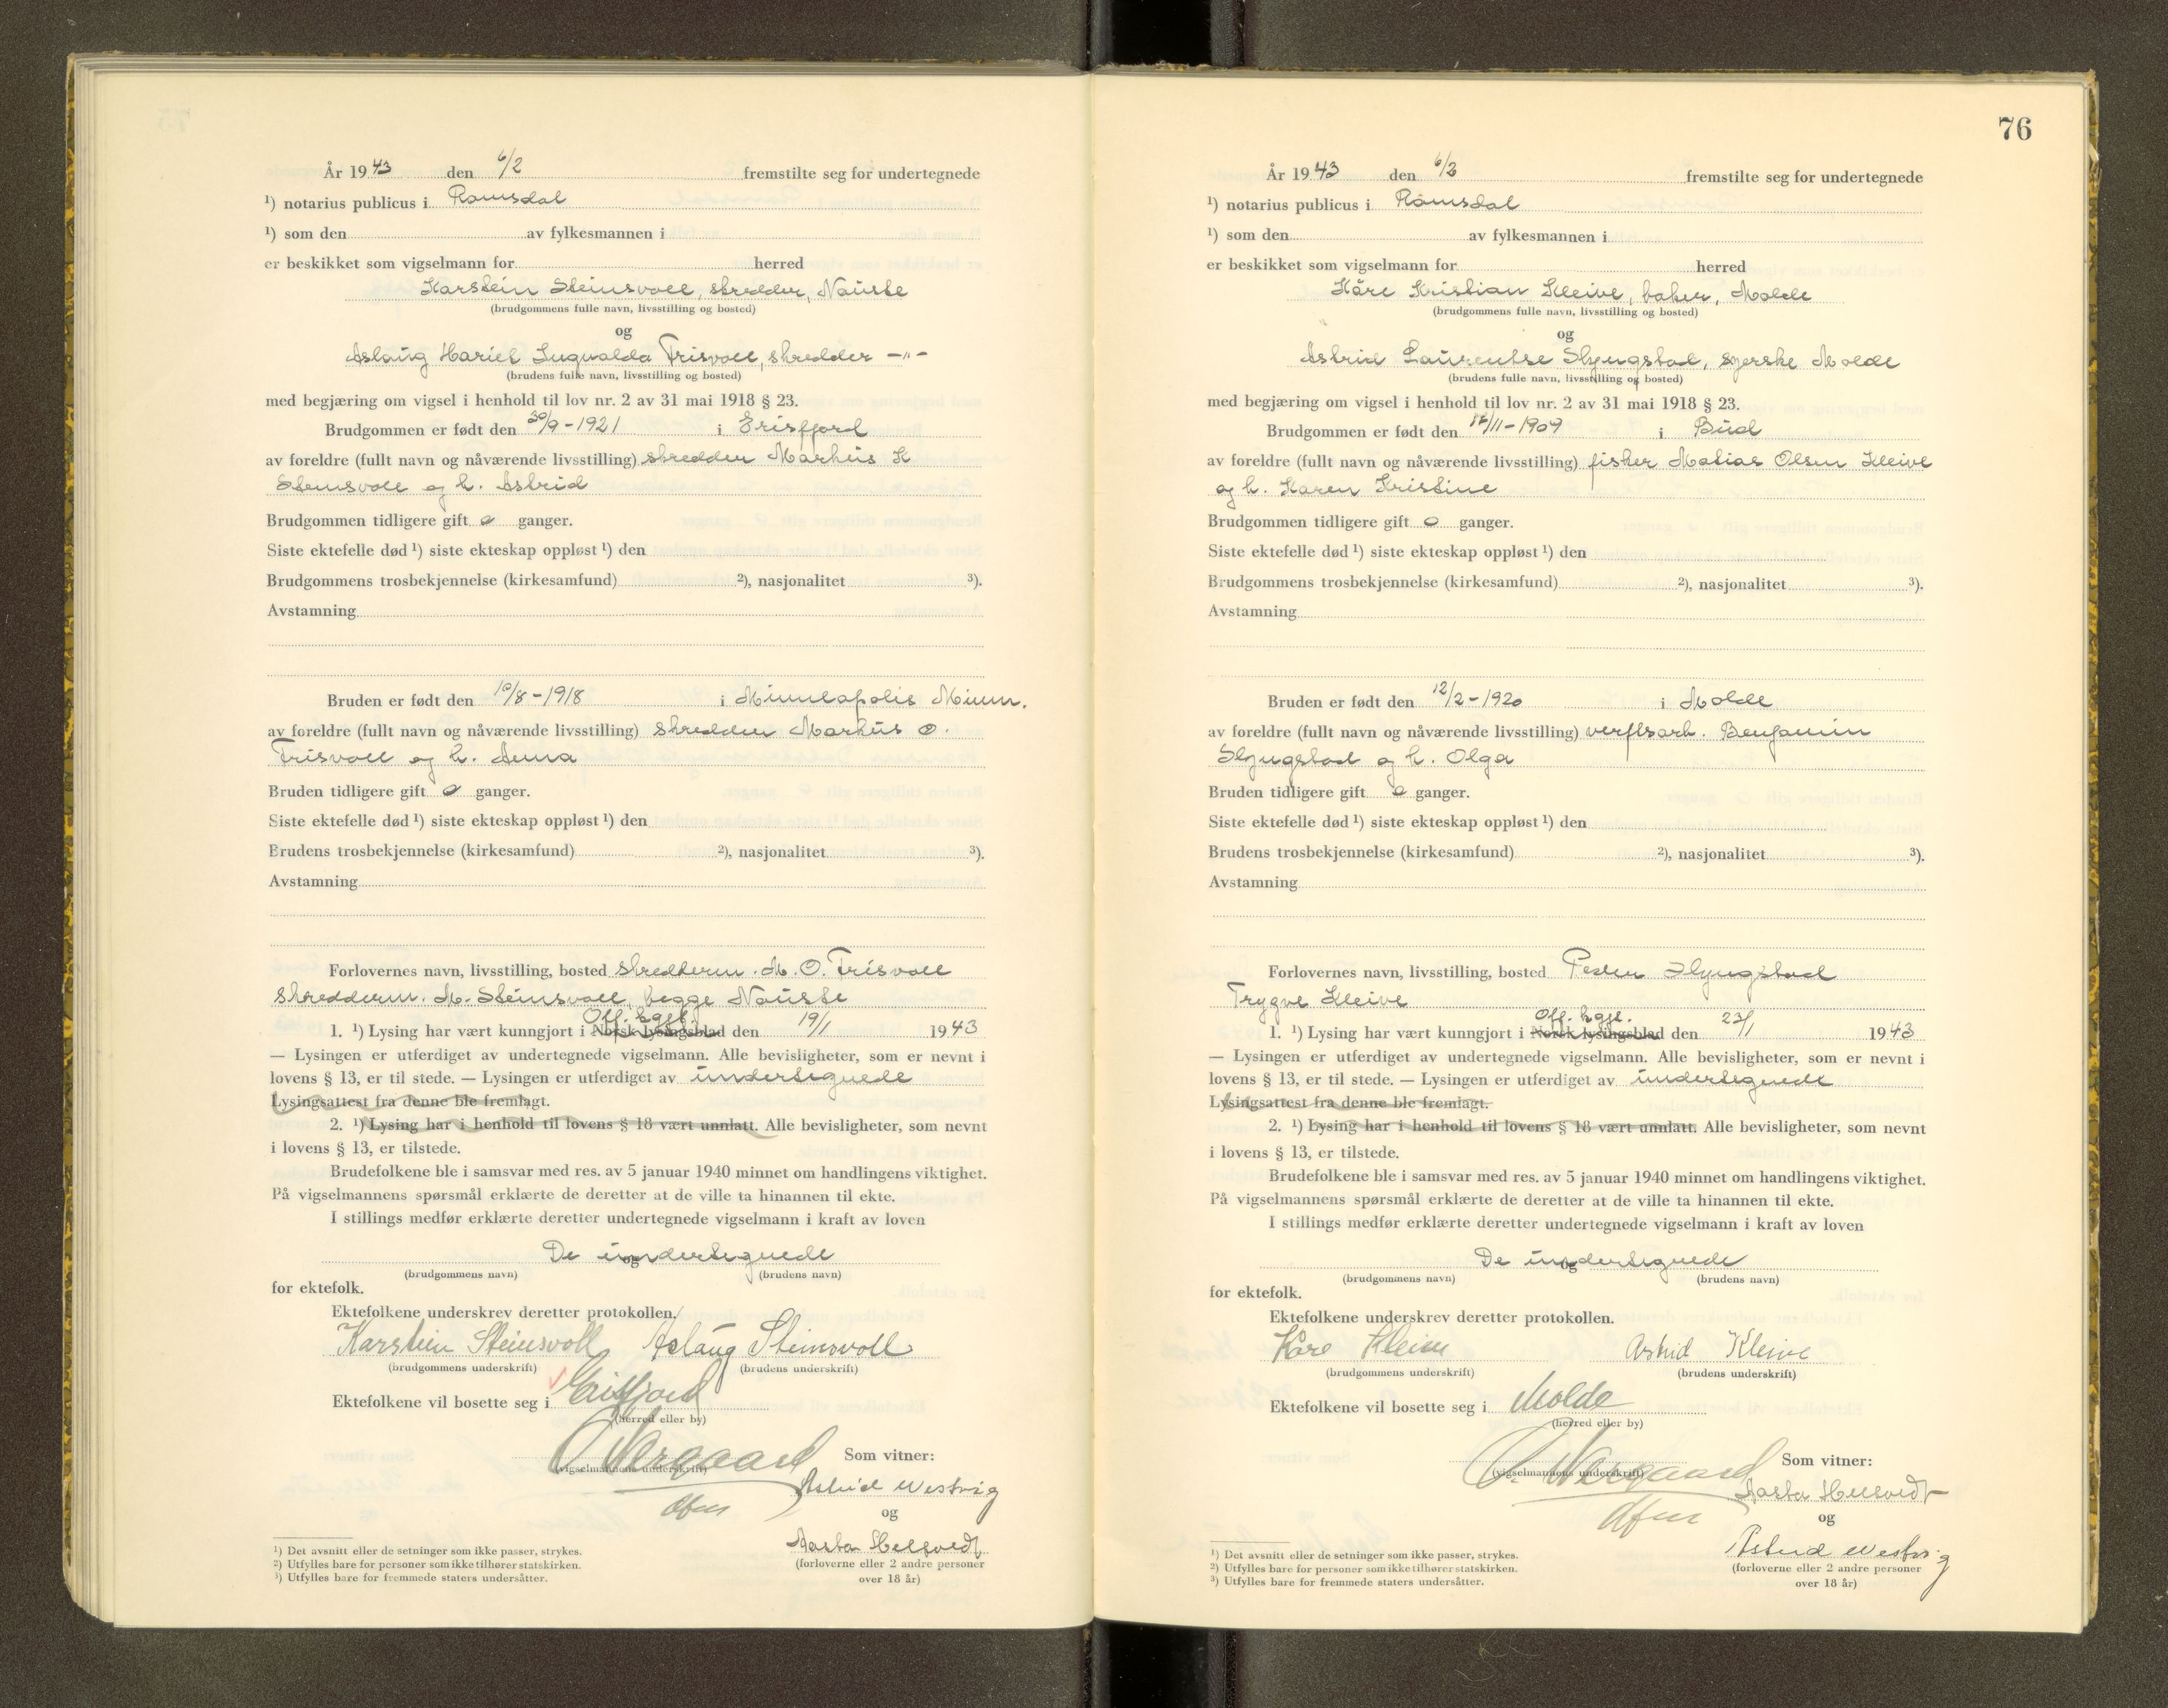 År 1943 den 6/2 fremstilte seg for undertegnede
¹) notarius publicus i Romsdal
¹) som den av fylkesmannen i
er beskikket som vigselmann for herred
Karstein Steinsvoll, skredder, Nauste
(brudgommens fulle navn, livsstilling og bosted)
og
Aslaug Hariet Ingvalda Frisvoll, skredder -"-
(brudens fulle navn, livsstilling og bosted)
med begjæring om vigsel i henhold til lov nr. 2 av 31 mai 1918 § 23.
Brudgommen er født den 30/9-1921 i Erisfjord
av foreldre (fullt navn og nåværende livsstilling) skredder Markus K
Steinsvoll og h. Astrid
Brudgommen tidligere gift 0 ganger.
Siste ektefelle død ¹) siste ekteskap oppløst ¹) den
Brudgommens trosbekjennelse (kirkesamfund) ²), nasjonalitet ³).
Avstamning
Bruden er født den 10/8-1918 i Minneapolis Minn.
av foreldre (fullt navn og nåværende livsstilling) skredder Markus O.
Frisvoll og h. Anna
Bruden tidligere gift 0 ganger.
Siste ektefelle død ¹) siste ekteskap oppløst ¹) den
Brudens trosbekjennelse (kirkesamfund) ²), nasjonalitet ³).
Avstamning
Forlovernes navn, livsstilling, bosted skredderm. M. O. Frisvoll
skredderm. M. Steinsvoll, begge Nauste
Off. kgjl.
1. ¹) Lysing har vært kunngjort i Norsk lysingsblad den 19/1 1943
— Lysingen er utferdiget av undertegnede vigselmann. Alle bevisligheter, som er nevnt i
lovens § 13, er til stede. — Lysingen er utferdiget av undertegnede
Lysingsattest fra denne ble fremlagt.
2. ¹) Lysing har i henhold til lovens § 18 vært unnlatt. Alle bevisligheter, som nevnt
i lovens § 13, er tilstede.
Brudefolkene ble i samsvar med res. av 5 januar 1940 minnet om handlingens viktighet.
På vigselmannens spørsmål erklærte de deretter at de ville ta hinannen til ekte.
I stillings medfør erklærte deretter undertegnede vigselmann i kraft av loven
De undertegnede
og
(brudgommens navn) (brudens navn)
for ektefolk.
Ektefolkene underskrev deretter protokollen.
Karstein Steinsvoll Aslaug Steinsvoll
(brudgommens underskrift) (brudens underskrift)
Ektefolkene vil bosette seg i Erisfjord
(herred eller by)
Som vitner:
(vigselmannens underskrift)
Astrid Westvig
og
Aasta Helsvedt
(forloverne eller 2 andre personer
over 18 år)
¹) Det avsnitt eller de setninger som ikke passer, strykes.
²) Utfylles bare for personer som ikke tilhører statskirken.
³) Utfylles bare for fremmede staters undersåtter.
76
År 1943 den 6/2 fremstilte seg for undertegnede
¹) notarius publicus i Romsdal
¹) som den av fylkesmannen i
er beskikket som vigselmann for herred
Kåre Kristian Kleive, baker, Molde
(brudgommens fulle navn, livsstilling og bosted)
og
Astrid Laurentse Slyngstad, syerske Molde
(brudens fulle navn, livsstilling og bosted)
med begjæring om vigsel i henhold til lov nr. 2 av 31 mai 1918 § 23.
Brudgommen er født den 17/11-1909 i Bud
av foreldre (fullt navn og nåværende livsstilling) fisker Matias Olsen Kleive
og h. Karen Kristine
Brudgommen tidligere gift 0 ganger.
Siste ektefelle død ¹) siste ekteskap oppløst ¹) den
Brudgommens trosbekjennelse (kirkesamfund) ²), nasjonalitet ³).
Avstamning
Bruden er født den 12/2-1920 i Molde
av foreldre (fullt navn og nåværende livsstilling) verftsarb. Benjamin
Slyngstad og h. Olga
Bruden tidligere gift 0 ganger.
Siste ektefelle død ¹) siste ekteskap oppløst ¹) den
Brudens trosbekjennelse (kirkesamfund) ²), nasjonalitet ³).
Avstamning
Forlovernes navn, livsstilling, bosted Peder Slyngstad
Trygve Kleive
Off. kgjl.
1. ¹) Lysing har vært kunngjort i Norsk lysingsblad den 23/1 1943
— Lysingen er utferdiget av undertegnede vigselmann. Alle bevisligheter, som er nevnt i
lovens § 13, er til stede. — Lysingen er utferdiget av undertegnede
Lysingsattest fra denne ble fremlagt.
2. ¹) Lysing har i henhold til lovens § 18 vært unnlatt. Alle bevisligheter, som nevnt
i lovens § 13, er tilstede.
Brudefolkene ble i samsvar med res. av 5 januar 1940 minnet om handlingens viktighet.
På vigselmannens spørsmål erklærte de deretter at de ville ta hinannen til ekte.
I stillings medfør erklærte deretter undertegnede vigselmann i kraft av loven
De undertegnede
og
(brudgommens navn) (brudens navn)
for ektefolk.
Ektefolkene underskrev deretter protokollen.
Kåre Kleive Astrid Kleive
(brudgommens underskrift) (brudens underskrift)
Ektefolkene vil bosette seg i Molde
(herred eller by)
Som vitner:
(vigselmannens underskrift)
Aasta Helsvedt
og
Astrid Westvig
(forloverne eller 2 andre personer
over 18 år)
¹) Det avsnitt eller de setninger som ikke passer, strykes.
²) Utfylles bare for personer som ikke tilhører statskirken.
³) Utfylles bare for fremmede staters undersåtter.